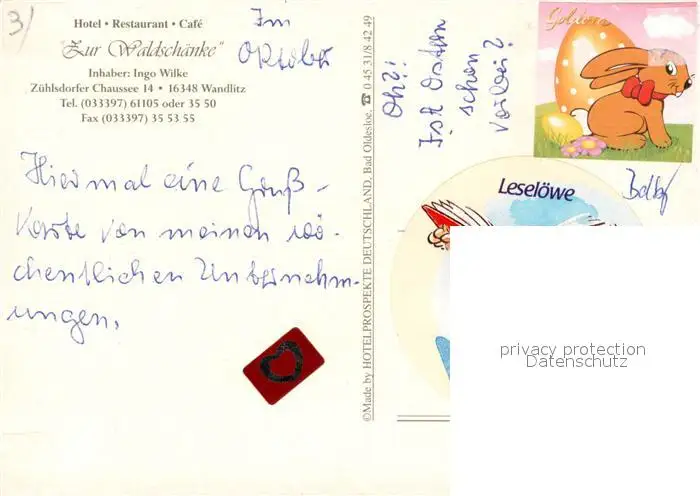 3)
Hotel • Restaurant • Café
"Zur Waldschänke"
Inhaber: Ingo Wilke
Zühlsdorfer Chaussee 14 • 16348 Wandlitz
Tel. (033397) 61105 oder 35 50
Fax (033397) 35 53 55
Im
Oktober
Hier mal eine Gruß-
karte von meinen wö-
chentlichen Unternehm-
ungen.
©Made by HOTELPROSPEKTE DEUTSCHLAND, Bad Oldesloe, ☎ 0 45 31/8 42 49
Oh?!
Ist Ostern
schon
vorbei?
Leselöwe
privacy protection
Datenschutz